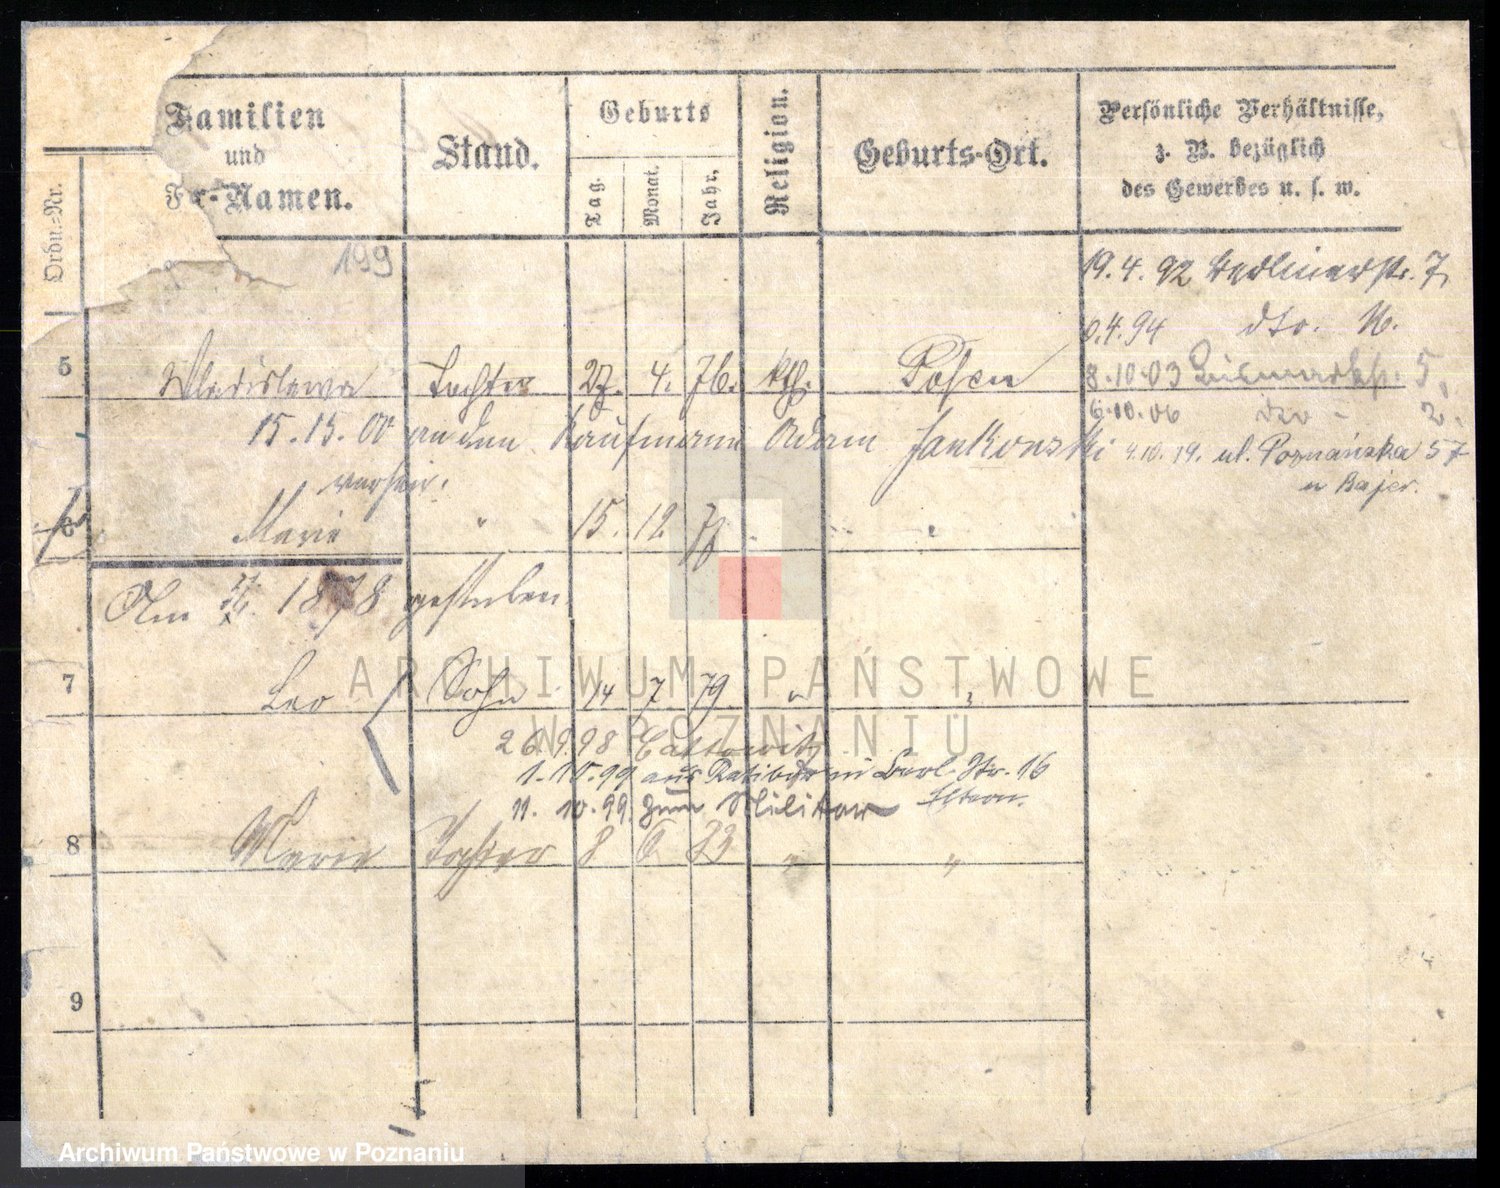 Familien
und
-Namen.
Stand.
Geburts
Tag. Monat. Jahr.
Religion.
Geburts-Ort.
Persönliche Verhältnisse,
z. B. bezüglich
des Gewerbes u. s. w.
Ordn.-Nr.
199
19.4.92 Berlinerstr. 7,
.4.94 dto. 16.
5 Wladislawa Tochter 27. 4. 76. kth. Posen
8.10.03 Bismarckstr. 5,
6.10.06 dto - 2.
15.15.00 an den Kaufmann Adam Jankowski
4.10.19. ul. Poznańska 57
u Bajer.
6 Marie " 15. 12
Am 1878 gestorben.
7 Leo Sohn 14 7. 79. " "
26.9.98 Cattowitz
1.10.99 aus Ratibor in Berl. Str. 16
Eltern.
11. 10. 99. zum Militär
8 Marie Tochter 8 6 83 " "
9
ARCHIWUM PAŃSTWOWE
W POZNANIU
Archiwum Państwowe w Poznaniu